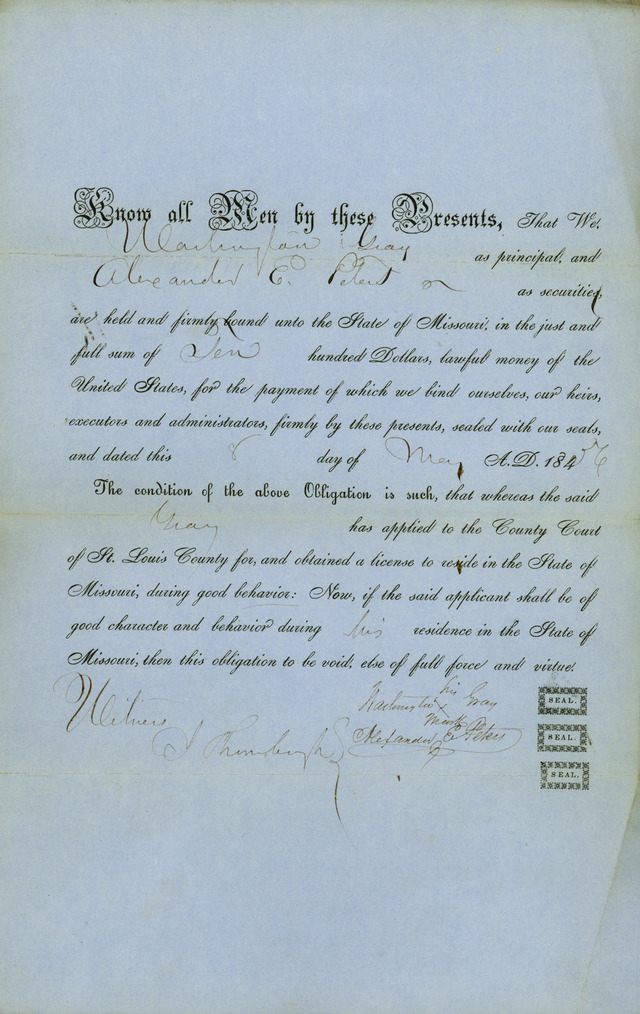 Know all Men by these Presents, That We,
Washington Gray as principal, and
Alexander E. Peters as securities,
are held and firmly bound unto the State of Missouri, in the just and
full sum of Ten hundred Dollars, lawful money of the
United States, for the payment of which we bind ourselves, our heirs,
executors and administrators, firmly by these presents, sealed with our seals,
and dated this 8 day of May A.D. 184
The condition of the above Obligation is such, that whereas the said
Gray has applied to the County Court
of St. Louis County for, and obtained a license to reside in the State of
Missouri, during good behavior: Now, if the said applicant shall be of
good character and behavior during his residence in the State of
Missouri, then this obligation to be void, else of full force and virtue.
Witness
his
Washington x Gray SEAL.
mark
Alexander E. Peters SEAL.
SEAL.